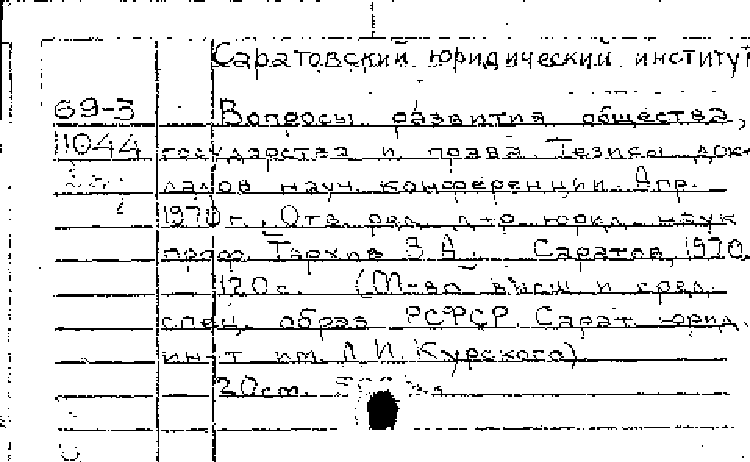 Саратовский юридический институт
69-3 Вопросы развития общества,
11044 государства и права. Тезисы док-
ладов науч. конференции. Апр.
1970 г. Отв. ред. д-р юрид. наук
проф. Тархов В.А. Саратов, 1970.
120 с. (М-во высш. и сред.
спец. образ. РСФСР. Сарат. юрид.
ин-т им. Д.И. Курского)
20 см.